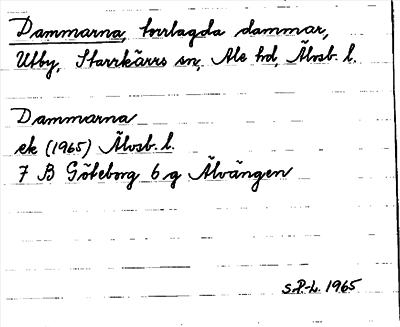 Dammarna, torrlagda dammar,
Utby, Starrkärrs sn, Ale hd, Älvsb. l.
Dammarna
ek (1965) Älvsb. l.
7 B Göteborg 6 g Älvängen
S.P-L. 1965